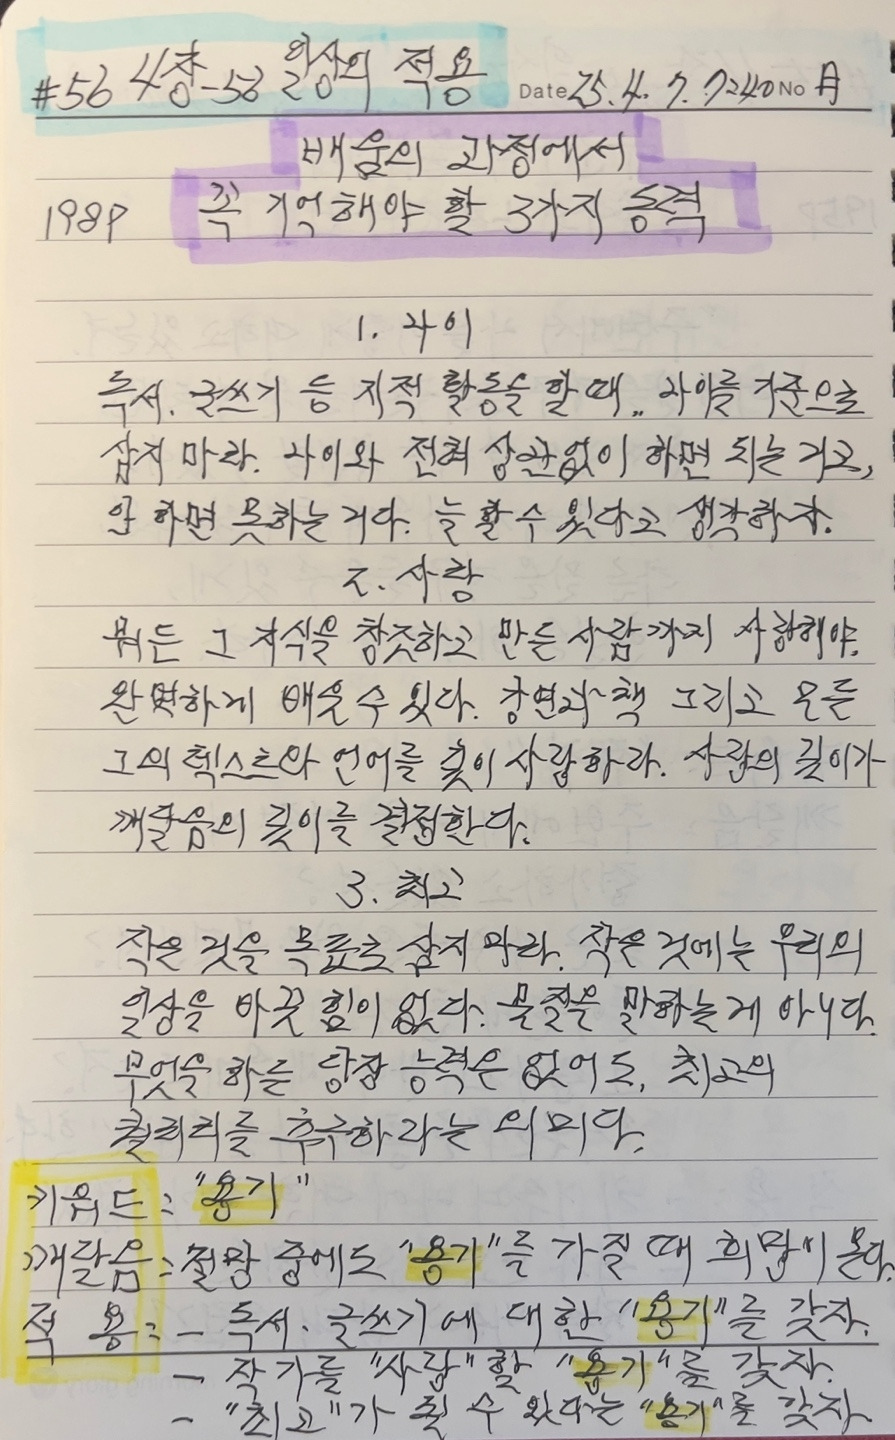 #56 4장-56 일상의 적용 Date 25. 4. 7. 7240 No 月
배움의 과정에서
198P 꼭 기억해야 할 3가지 능력
1. 나이
독서. 글쓰기 등 지적 활동을 할 때.. 나이를 기준으로
삼지 마라. 나이와 전혀 상관없이 하면 되는 거고,
안 하면 못하는 거다. 늘 할 수 있다고 생각하자.
2. 사랑
뭐든 그 지식을 창조하고 만든 사람까지 사랑해야.
완벽하게 배울 수 있다. 강연과 책 그리고 모든
그의 텍스트와 언어를 깊이 사랑하라. 사랑의 깊이가
깨달음의 깊이를 결정한다.
3. 최고
작은 것을 목표로 삼지 마라. 작은 것에는 우리의
일상을 바꿀 힘이 없다. 물질을 말하는 게 아니다.
무엇을 하든 당장 능력은 없어도, 최고의
퀄리티를 추구하라는 의미다.
키워드 = "용기"
깨달음 = 절망 중에도 "용기"를 가질 때 희망이 온다.
적 용 = - 독서. 글쓰기에 대한 "용기"를 갖자.
- 작가를 "사랑"할 "용기"를 갖자.
- "최고"가 될 수 있다는 "용기"를 갖자.